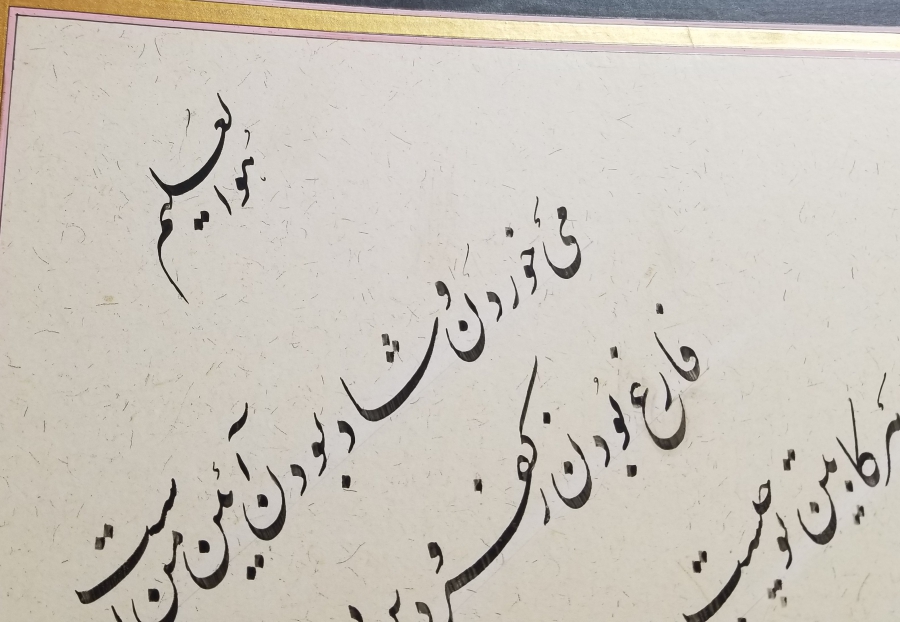 هوا العلیم
می خوردن و شاد بودن آئین من است
فارغ بودن ز کفر و دین
کابین تو چیست